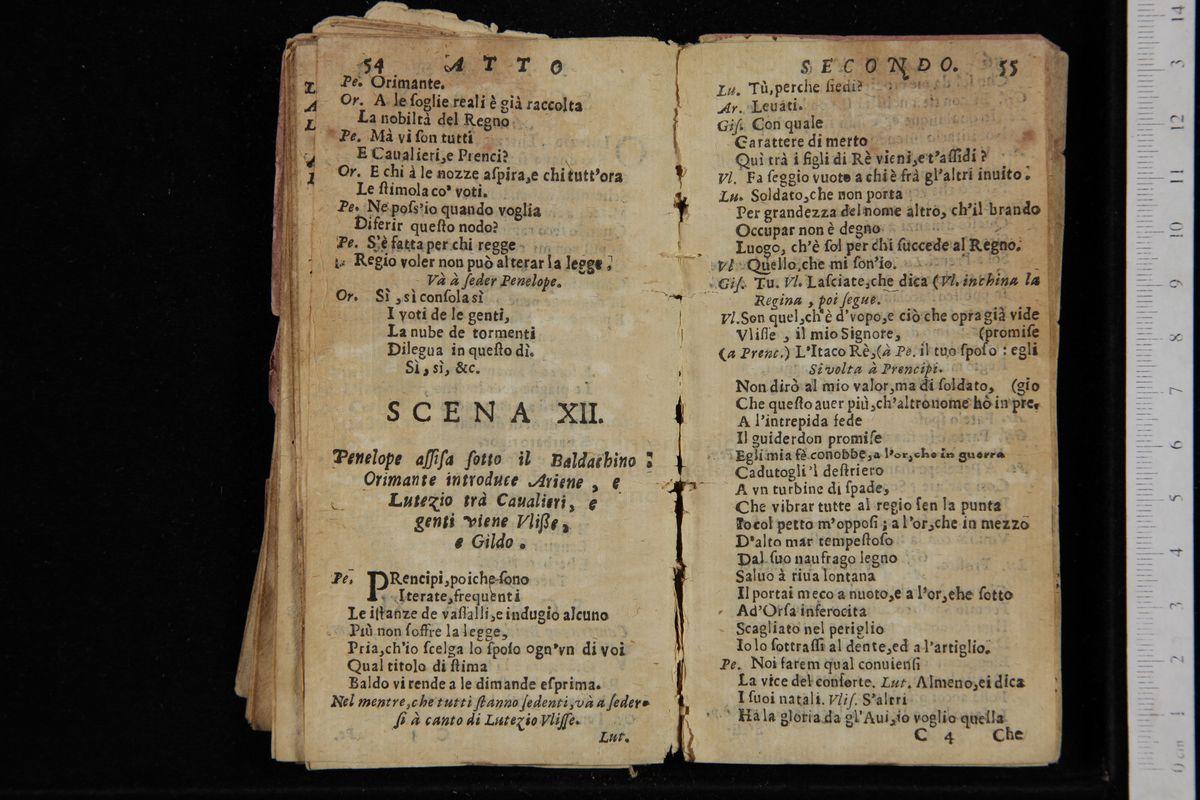 54 ATTO
Pe. Orimante.
Or. A le ſoglie reali è già raccolta
La nobiltà del Regno
Pe. Mà vi ſon tutti
E Caualieri,e Prenci?
Or. E chi à le nozze aſpira,e chi tutt'ora
Le ſtimola co' voti.
Pe. Ne poſs'io quando voglia
Diferir queſto nodo?
Pe. S'è fatta per chi regge
Regio voler non può alterar la legge.
Và à ſeder Penelope.
Or. Sì , sì conſola sì
I voti de le genti,
La nube de tormenti
Dilegua in queſto dì.
Sì, sì, &c.
SCENA XII.
Penelope aſſiſa ſotto il Baldachino :
Orimante introduce Ariene , e
Lutezio trà Caualieri, e
genti viene Vliſſe,
e Gildo .
Pe. PRencipi,poiche ſono
Iterate,frequenti
Le iſtanze de vaſſalli,e indugio alcuno
Più non ſoffre la legge,
Pria,ch'io ſcelga lo ſpoſo ogn'vn di voi
Qual titolo di ſtima
Baldo vi rende a le dimande eſprima.
Nel mentre,che tutti ſtanno ſedenti,và a ſeder-
ſi à canto di Lutezio Vliſſe.
Lut.
SECONDO. 55
Lu. Tù,perche ſiedi?
Ar. Leuati.
Giſ. Con quale
Carattere di merto
Quì trà i figli di Rè vieni,e t'aſſidi ?
Vl. Fa ſeggio vuoto a chi è frà gl'altri inuito.
Lu. Soldato,che non porta
Per grandezza del nome altro, ch'il brando
Occupar non è degno
Luogo, ch'è ſol per chi ſuccede al Regno.
Vl Quello,che mi ſon'io.
Giſ. Tu. Vl. Laſciate,che dica (Vl. inchina la
Regina , poi ſegue.
Vl.Son quel,ch'è d'vopo,e ciò che opra già vide
Vliſſe , il mio Signore, (promiſe
(a Prenc.) L'Itaco Rè,(à Pe. il tuo ſpoſo : egli
Si volta à Prencipi.
Non dirò al mio valor,ma di ſoldato, (gio
Che queſto auer più,ch'altro nome hò in pre-
A l'intrepida fede
Il guiderdon promiſe
Egli mia fè conobbe,a l'or,che in guerra
Cadutogli 'l deſtriero
A vn turbine di ſpade,
Che vibrar tutte al regio ſen la punta
Io col petto m'oppoſi ; a l'or,che in mezzo
D'alto mar tempeſtoſo
Dal ſuo naufrago legno
Saluo à riua lontana
Il portai meco a nuoto,e a l'or,che ſotto
Ad'Orſa inferocita
Scagliato nel periglio
Io lo ſottraſſi al dente,ed a l'artiglio.
Pe. Noi farem qual conuienſi
La vice del conſorte. Lut. Almeno,ei dica
I ſuoi natali. Vliſ. S'altri
Ha la gloria da gl'Aui,io voglio quella
C 4 Che